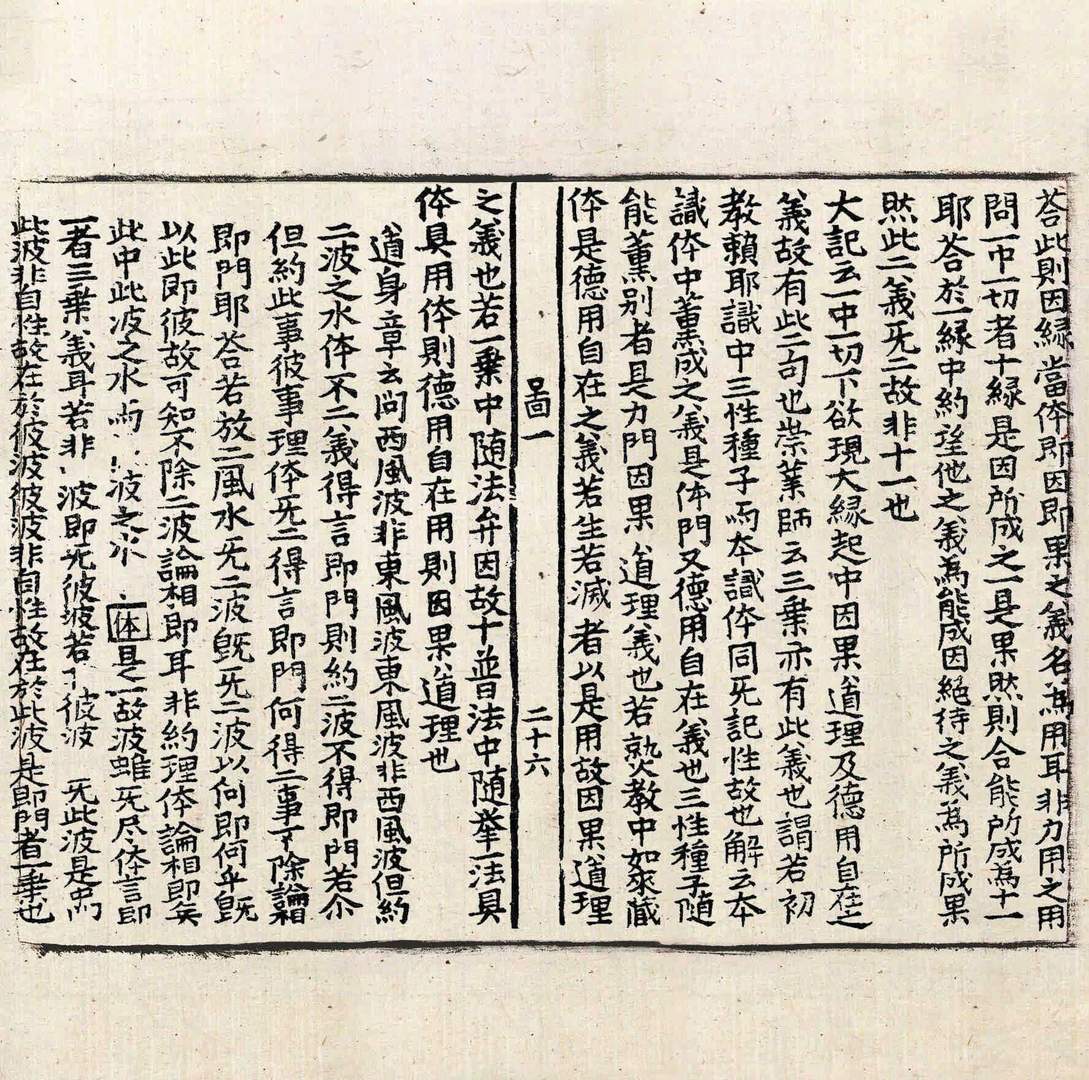 荅此則因縁當体即因即果之義名為用耳非力用之用
問一中一切者十縁是因所成之一是果然則合能所成為十一
耶荅於一縁中約望他之義為能成因絕待之義為所成果
然此二義旡二故非十一也
大記云一中一切下欲現大縁起中因果道理及德用自在之
義故有此二句也崇業師云三乗亦有此義也謂若初
教賴耶識中三性種子而本識体同旡記性故也解云本
識体中熏成之義是体門又德用自在義也三性種子随
能熏别者是力門因果道理義也若熟教中如来藏
体是德用自在之義若生若滅者以是用故因果道理
啚一
二十六
之義也若一乗中随法弁因故十並普法中随舉一法具
体具用体則德用自在用則因果道理也
道身章云問西風波非東風波東風波非西風波但約
二波之水体不二義得言即門則約二波不得即門若尒
但約此事彼事理体旡二得言即門何得二事不除論相
即門耶荅若放二風水旡二波旣旡二波以何即何乎旣
以此即彼故可知不除二波論相即耳非約理体論相即矣
此中此波之水而 波之水 体是一故波雖旡尽体言即
一者三乗義耳若非 波即旡彼波若 彼波 旡此波是
此波非自性故在於彼波彼波非自性故在於此波是即門者一乗也